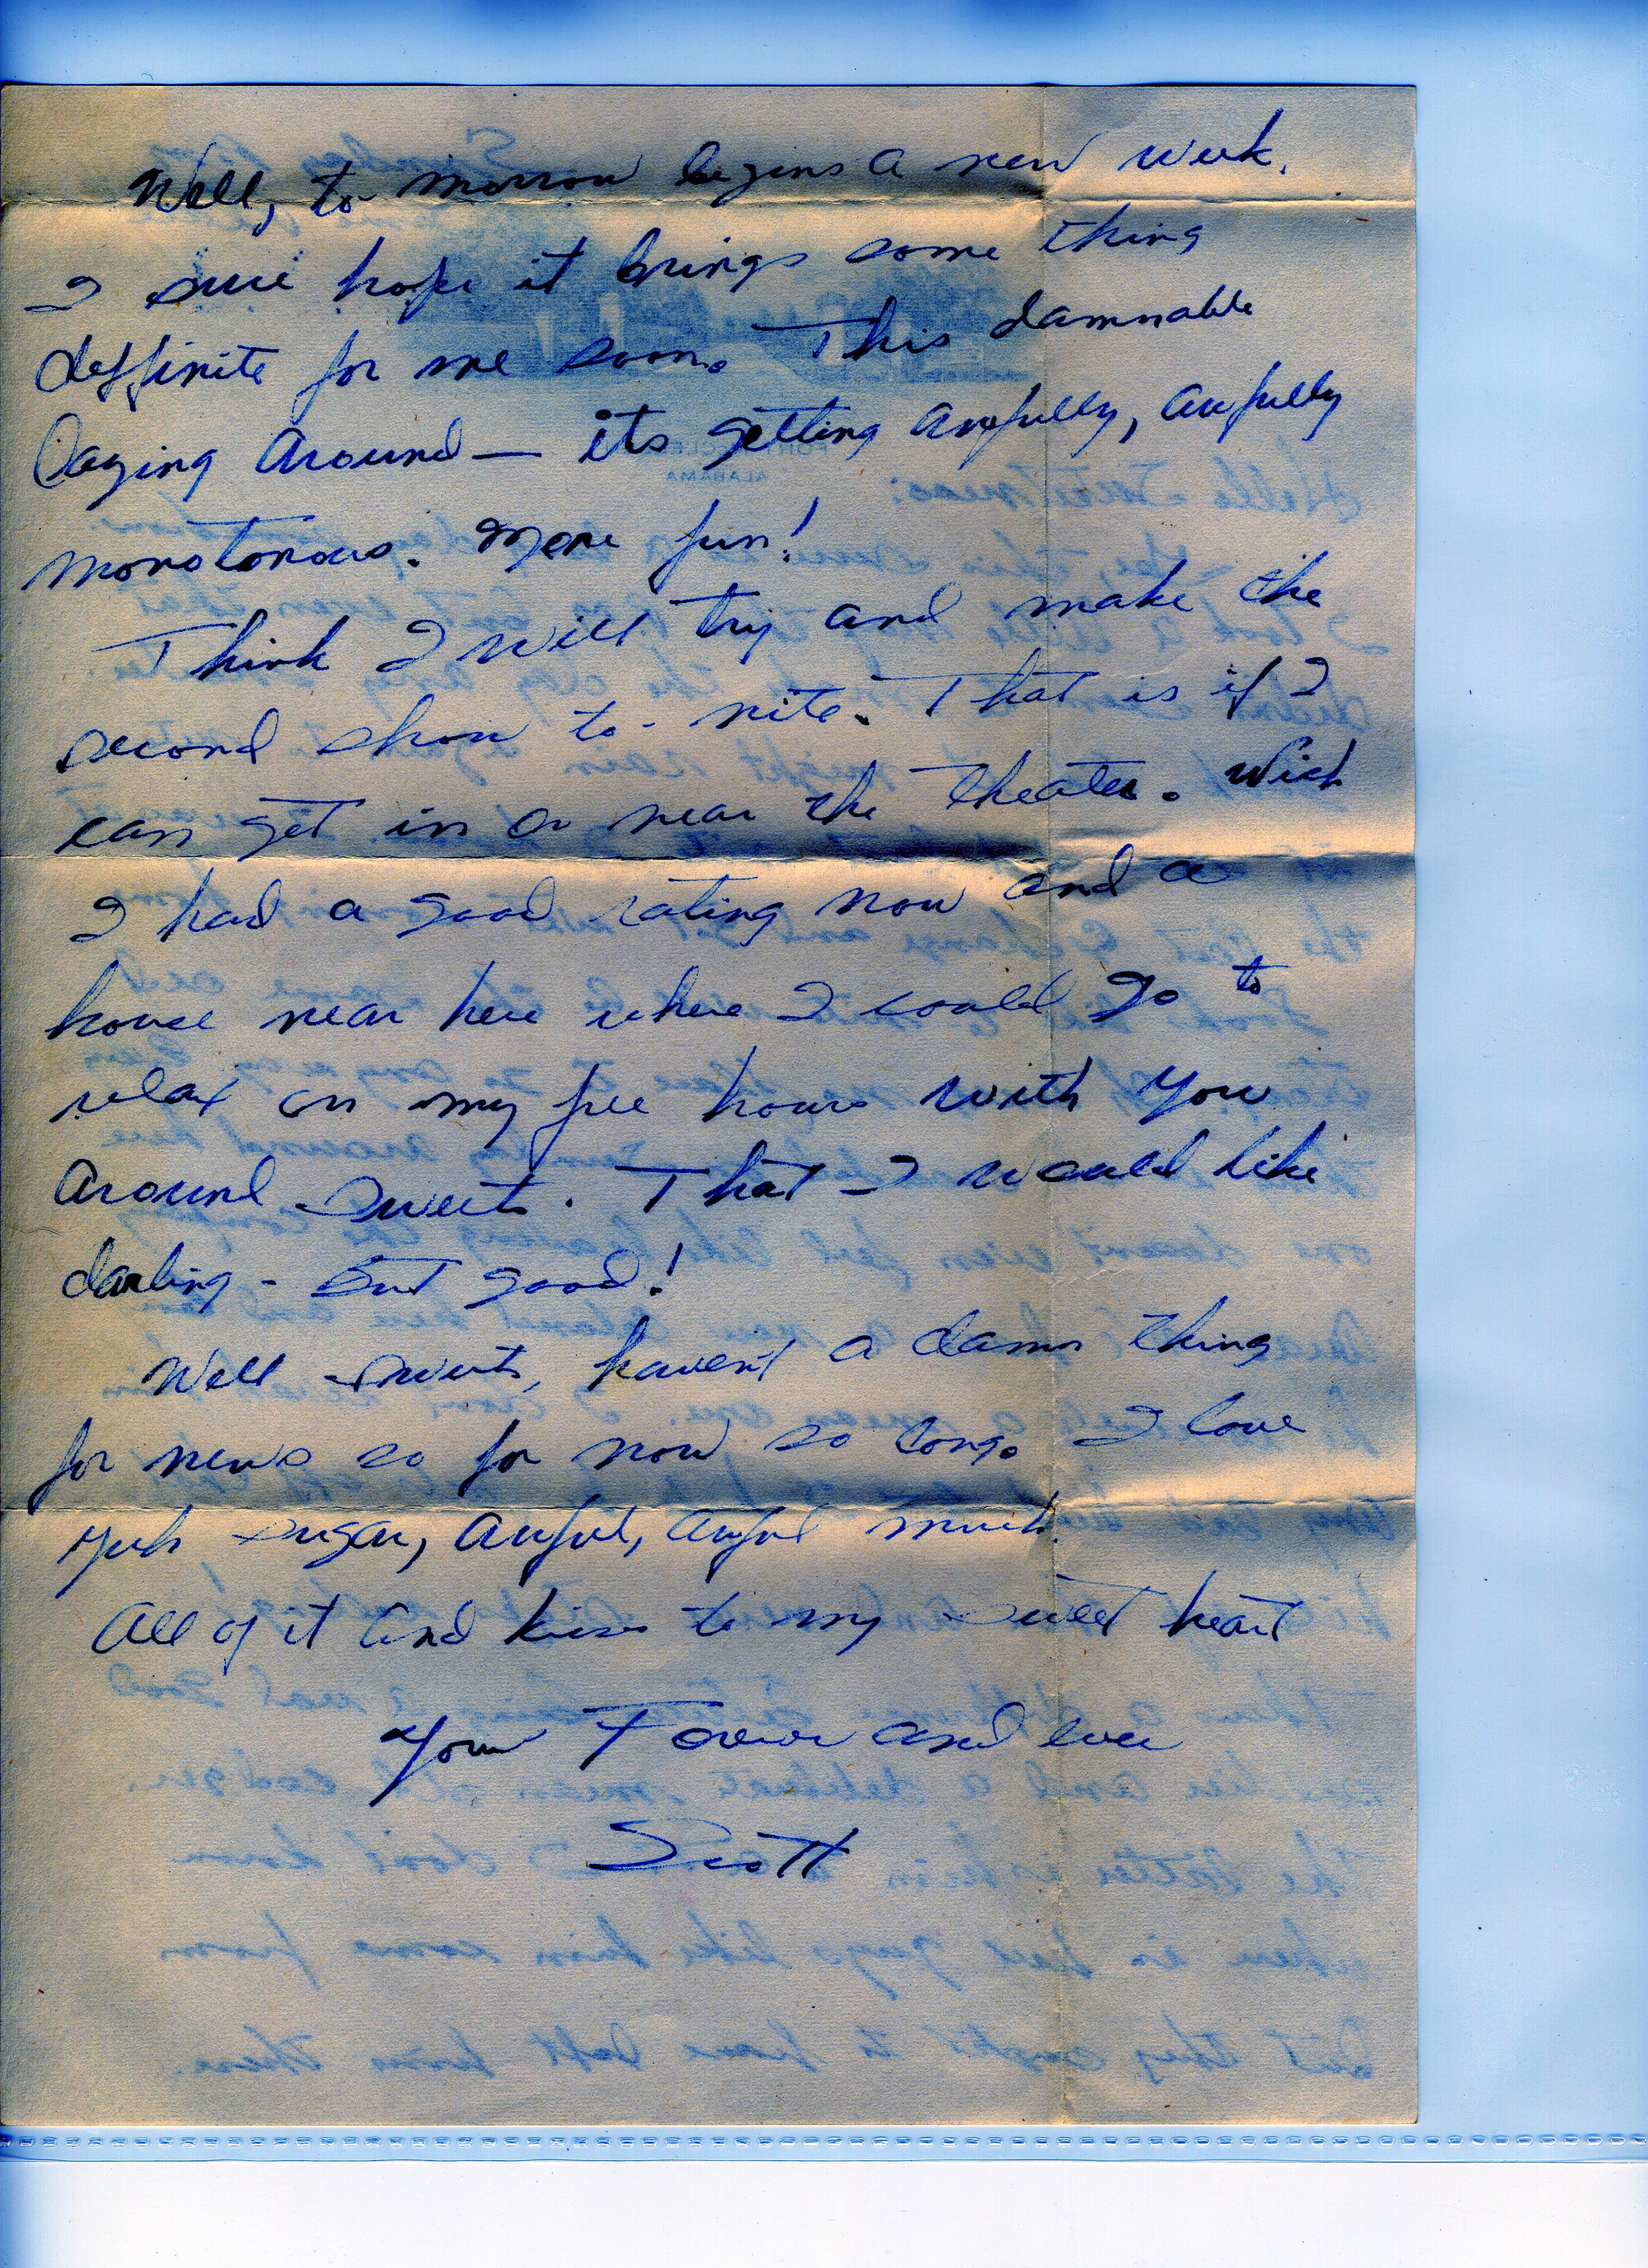 Well, to morrow begins a new week.
I sure hope it brings some thing
deffinite for me soon. This damnable
laying around — its getting awfully, awfully
monotonous. More fun!
Think I will try and make the
second show to-nite. That is if I
can get in or near the theater. Wish
I had a good rating now and a
house near here where I could go to
relax on my free hours with you
around sweets. That I would like
darling - but good!
Well sweets, haven't a damn thing
for news so for now so long. I love
yuh sugar, awful, awful much.
All of it and kisses to my sweet heart
Your Forever and ever
Scott